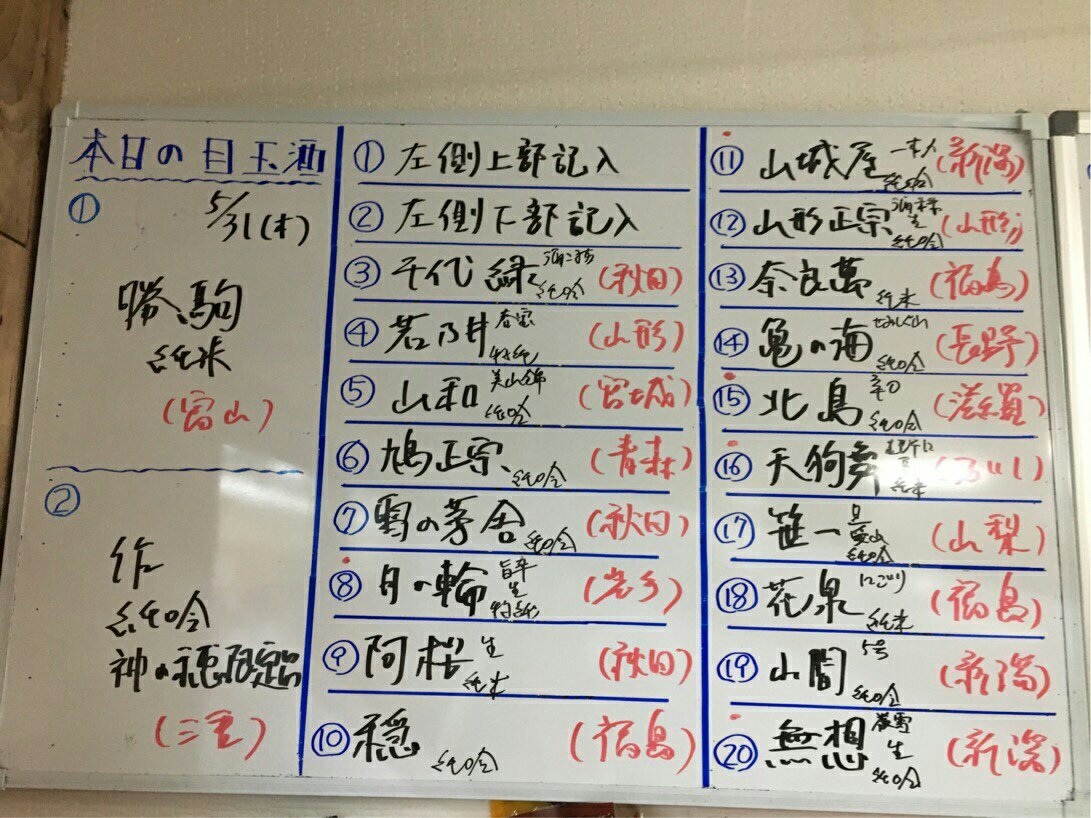 本日の目玉酒
① 5/31(木)
勝駒
純米
(富山)
②
作
純吟
神の穂限定品
(三重)
① 左側上部記入
② 左側下部記入
③ 千代緑 純吟 (秋田)
④ 若乃井 春宴 特純 (山形)
⑤ 山和 美山錦 純吟 (宮城)
⑥ 鳩正宗 純吟 (青森)
⑦ 雪の茅舎 純吟 (秋田)
⑧ 月の輪 旨辛 生 特純 (岩手)
⑨ 阿桜 生 純米 (秋田)
⑩ 穏 純吟 (福島)
⑪ 山城屋 一本〆 純吟 (新潟)
⑫ 山形正宗 酒未来 生 純吟 (山形)
⑬ 奈良萬 純米 (福島)
⑭ 亀の海 純吟 (長野)
⑮ 北島 辛口 純吟 (滋賀)
⑯ 天狗舞 純米 (石川)
⑰ 笹一 純吟 (山梨)
⑱ 花泉 にごり 純米 (福島)
⑲ 山間 5号 純吟 (新潟)
⑳ 無想 生 純吟 (新潟)